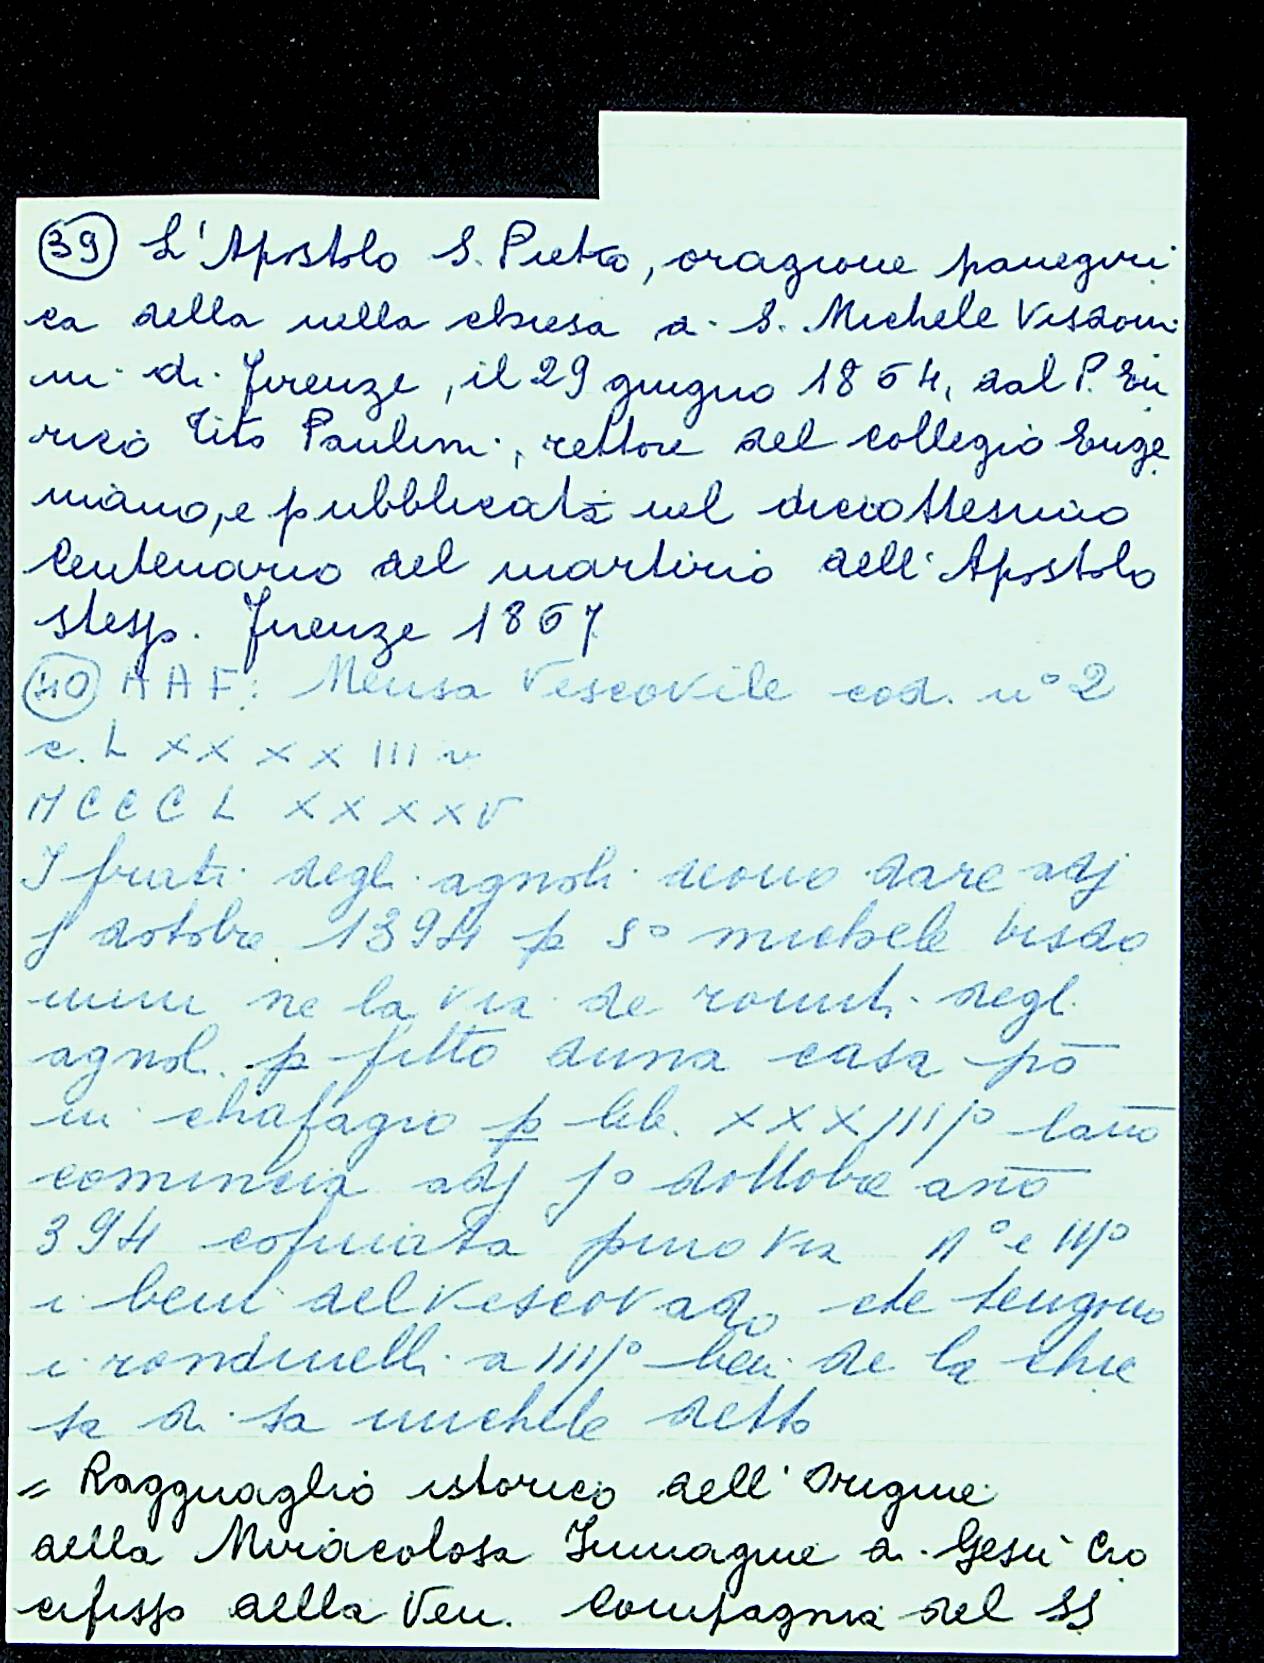 39 L'Apostolo S. Pietro, orazione panegiri
ca della nella chiesa di S. Michele Visdomi
ni di Firenze, il 29 giugno 1864, dal P. En
rico Tito Paulini, rettore del collegio Euge
niano, e pubblicata nel diciottesimo
Centenario del martirio dell'Apostolo
stesso. Firenze 1867
40 AAF: Mensa Vescovile cod. n° 2
c. L XX XX III v
MCCC L XXXX V
I frati degli agnoli deono dare adj
j dotobre 1394 p s° michele bisdo
mini ne la via de romiti degli
agnoli p fitto duna casa pō
in chafagio p lib. XXX IIII° lano
comincia adj j° dottobre ano
394 copiata
i beni del vescovado che tengono
i rondinelli a IIII° ben de la chie
sa di sa michele detto
= Ragguaglio istorico dell'Origine
della Miracolosa Immagine di Gesù Cro
cifisso della Ven. Compagnia del SS